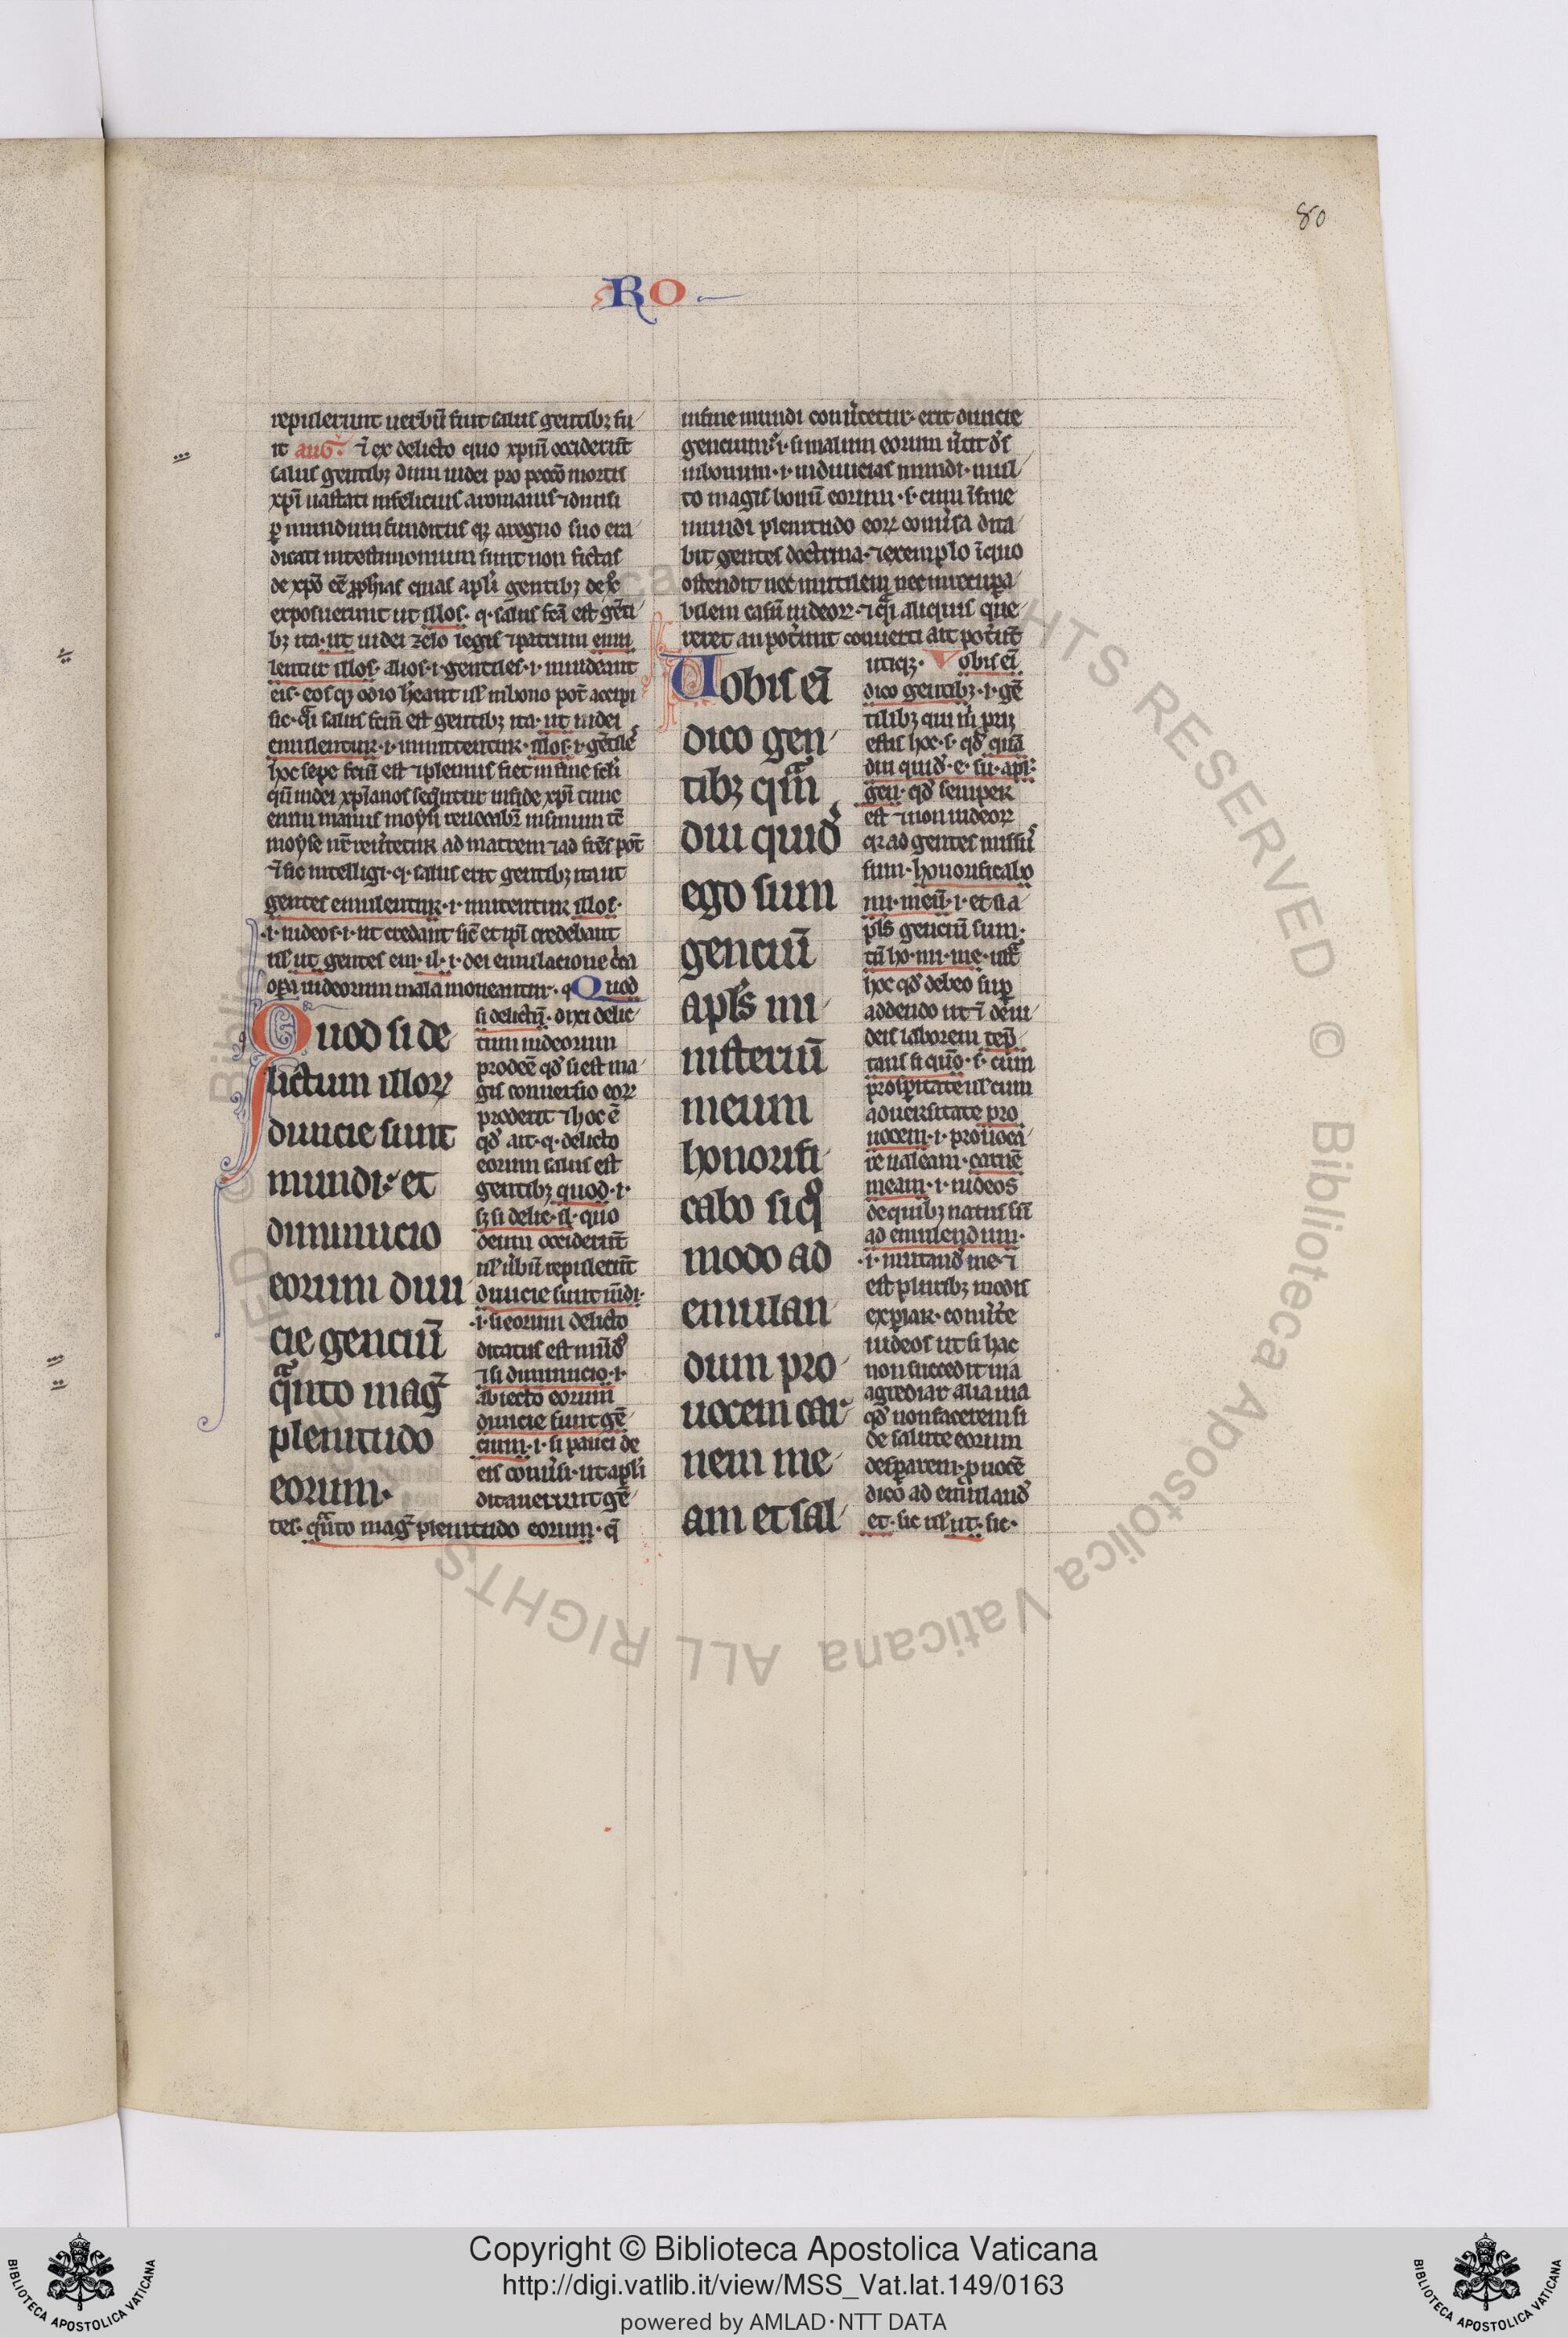 80
RO
repulerunt uerbū fuit salus gentibꝫ fu
it aug̾. ⁊ ī ex delicto quo xpm̄ occiderūt
salus gentibꝫ dum iudei pro pctō mortis
xpi uastati infelicius a romanis ⁊ diuisi
ꝑ mundum funditus qꝫ a regno suo era
dicati in testimonium sunt non fictas
de xpō eē ꝓphias quas apli gentibꝫ de se
exposuerunt ut illos. q. salus fcā est gēti
bꝫ ita. ut iudei zelo legis ⁊ patrum emu
lentur illos. alios .i. gentiles .i. inuideant
eis. eosqꝫ odio habeant ul in bono pot accipi
sic. qi salus fcm est gentibꝫ ita. ut iudei
emulentur .i. imittentur. illos .i. gētiles
hoc sepe fcm̄ est ⁊ plenius fiet in fine scli
qn̄ iudei xpianos sequtur in fide xpi tunc
enim manus moysi reuocabr̄ in sinum tē
moyse nr̄ reuertetur ad matrem ⁊ ad frēs pot̄
⁊ sic intelligi. q. salus erit gentibꝫ ita ut
gentes emulentur .i. imitentur illos.
.i. iudeos .i. ut credant sic et ipi credebant
ul ut gentes em. il. .i. dei emulacione ctra
opa iudeorum mala moueantur. q Quod
Quod si de
lictum illoꝝ
diuicie sunt
mundi. et
diminucio
eorum diui
cie genciū
qͣnto mag̾
plenitudo
eorum.
si delictū. dixi delic
tum iudeorum
prodeē qd̾ si est ma
gis conuersio eoꝝ
proderit ⁊ hoc ē
qd̾ ait. q. delicto
eorum salus est
gentibꝫ quod .i.
sꝫ si delic. il. quo
deum occiderūt
ul ūbū repulerūt
diuicie sunt mūdi.
.i. si eorum delicto
ditatus est mūd̾
⁊ si diminucio .i.
abiectō eorum
diuicie sunt gē
cium .i. si pauci de
eis conūsi. ut apli
ditauerunt gē
tes. qͣnto mag̾ plenitudo eorum. q̄
in fine mundi conūtetur. erit diuicie
gencium .i. si malum eorum ūtit ds
in bonum .i. in diuicias mundi. mul
to magis bonū eorum .s. cum ī fine
mundi plenitudo eoꝝ conūsa dita
bit gentes doctrina. ⁊ exemplo ī quo
ostendit nec inutilem nec irrecupa
bilem casū iudeoꝝ. ⁊ qi aliquis que
reret an pot̾unt conuerti ait pot̾ūt
Uobis eī
dico gen
tibꝫ qͣm
diu quid̾
ego sum
genciū
apls mi
nisteriū
meum
honorifi
cabo si qͦ
modo ad
emulan
dum pro
uocem car
nem me
am et sal
utiqꝫ. Vobis eī
dico gentibꝫ .i. gē
tilibꝫ qui in pru
estis hoc .s. qd̾ quā
diu quid̾. e. su. apl.
gen. qd̾ semper
est ⁊ non iudeoꝝ
qꝛ ad gentes missꝰ
sum. honorificabo
mi. meū .i. et si a
pls genciū sum.
tn̄ ho. mi. me. ult
hoc qd̾ debeo sup
addendo ut ⁊ ī deiu
deis laborem tep̄
tans si quō .s. cum
prospitate ul cum
aduersitate pro
uocem .i. prouoca
re ualeam. carnē
meam .i. iudeos
de quibꝫ natus sū
ad emulendum.
.i. imitand̾ me. ⁊
est pluribꝫ modis
expiar. conūte
iudeos ut si hac
non succedit uia
agrediar alia uia
qd̾ non facerem si
de salute eorum
despararem. ꝓuocē
dico ad emuland̾
et. sic ul ut. sic.
Copyright © Biblioteca Apostolica Vaticana
http://digi.vatlib.it/view/MSS_Vat.lat.149/0163
powered by AMLAD·NTT DATA